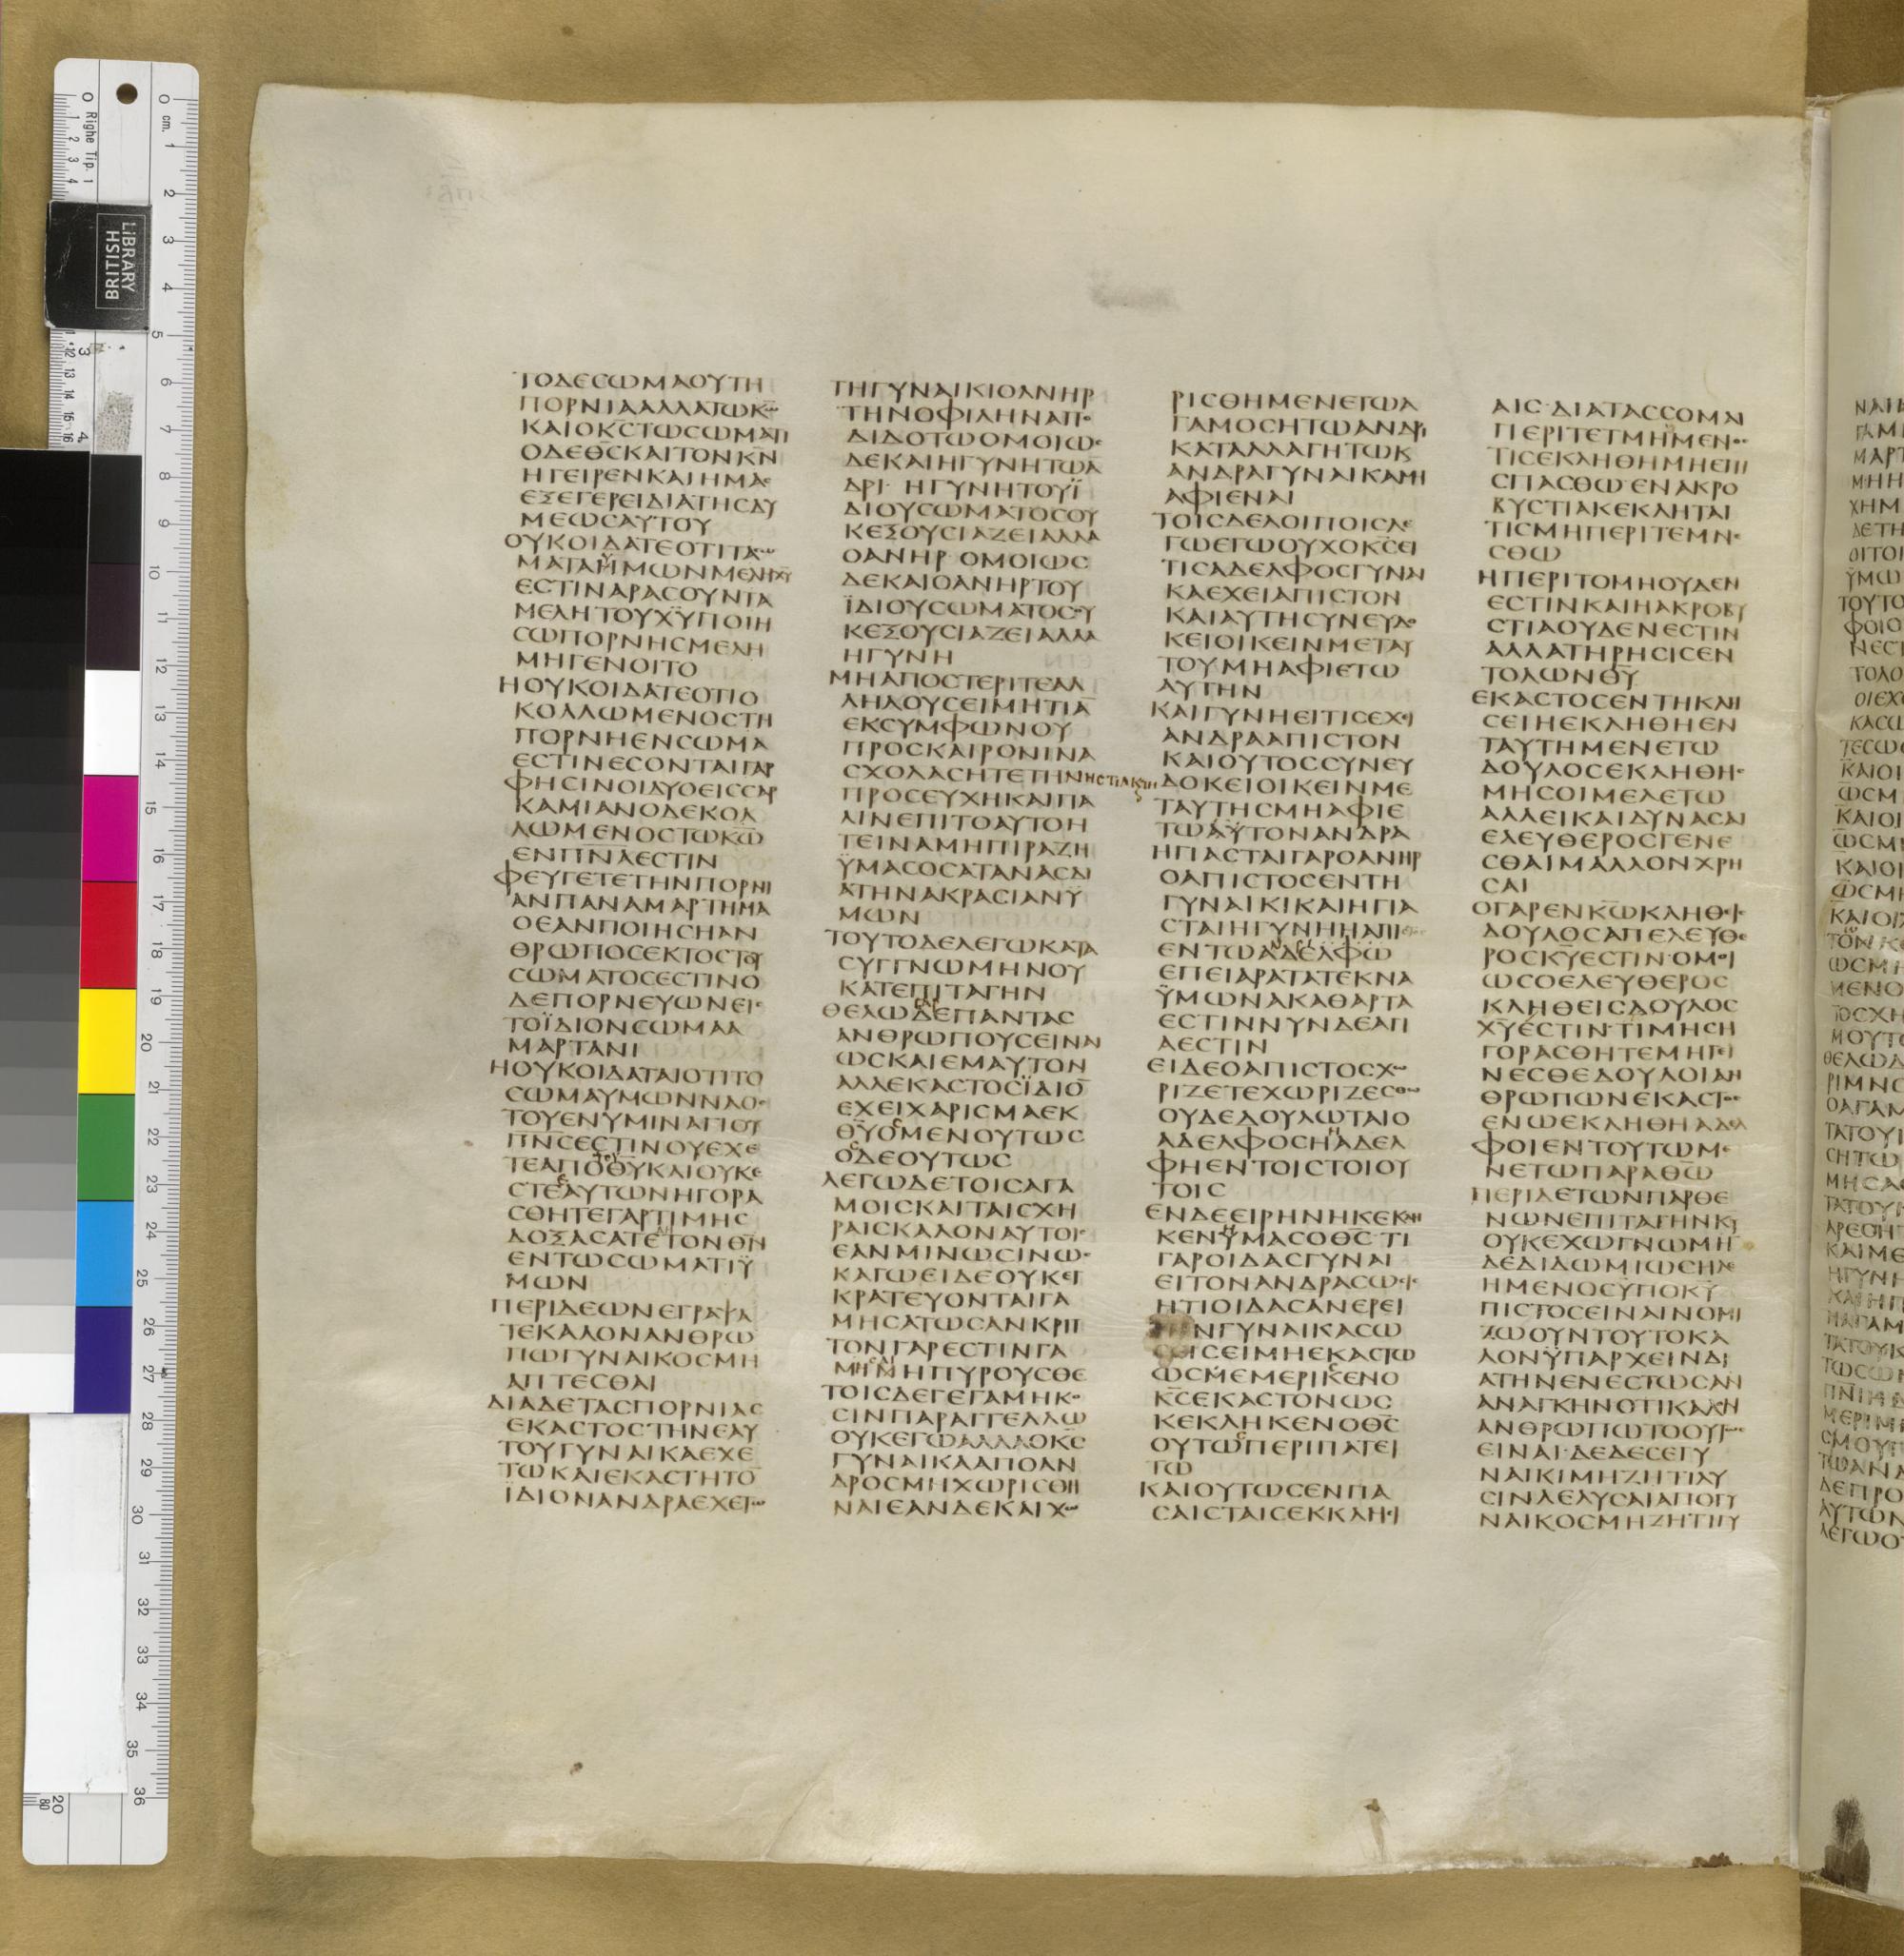 ΤΟΔΕϹΩΜΑΟΥΤΗ
ΠΟΡΝΙΑΑΛΛΑΤΩΚΩ
ΚΑΙΟΚϹΤΩϹΩΜΑΤΙ
ΟΔΕΘϹΚΑΙΤΟΝΚΝ
ΗΓΕΙΡΕΝΚΑΙΗΜΑϹ
ΕΞΕΓΕΡΕΙΔΙΑΤΗϹΔΥ
ΜΕΩϹΑΥΤΟΥ
ΟΥΚΟΙΔΑΤΕΟΤΙΤΑϹΩ
ΜΑΤΑΗΜΩΝΜΕΛΗΧΥ
ΕϹΤΙΝΑΡΑϹΟΥΝΤΑ
ΜΕΛΗΤΟΥΧΥΠΟΙΗ
ϹΩΠΟΡΝΗϹΜΕΛΗ
ΜΗΓΕΝΟΙΤΟ
ΗΟΥΚΟΙΔΑΤΕΟΤΙΟ
ΚΟΛΛΩΜΕΝΟϹΤΗ
ΠΟΡΝΗΕΝϹΩΜΑ
ΕϹΤΙΝΕϹΟΝΤΑΙΓΑΡ
ΦΗϹΙΝΟΙΔΥΟΕΙϹϹΑΡ
ΚΑΜΙΑΝΟΔΕΚΟΛ
ΛΩΜΕΝΟϹΤΩΚΩ
ΕΝΠΝΑΕϹΤΙΝ
ΦΕΥΓΕΤΕΤΗΝΠΟΡΝΙ
ΑΝΠΑΝΑΜΑΡΤΗΜΑ
ΟΕΑΝΠΟΙΗϹΗΑΝ
ΘΡΩΠΟϹΕΚΤΟϹΤΟΥ
ϹΩΜΑΤΟϹΕϹΤΙΝΟ
ΔΕΠΟΡΝΕΥΩΝΕΙϹ
ΤΟΪΔΙΟΝϹΩΜΑΑ
ΜΑΡΤΑΝΙ
ΗΟΥΚΟΙΔΑΤΑΙΟΤΙΤΟ
ϹΩΜΑΥΜΩΝΝΑΟϹ
ΤΟΥΕΝΥΜΙΝΑΓΙΟΥ
ΠΝϹΕϹΤΙΝΟΥΕΧΕ
ΤΕΑΠΟΘΥΚΑΙΟΥΚΕ
ϹΤΕΑΥΤΩΝΗΓΟΡΑ
ϹΘΗΤΕΓΑΡΤΙΜΗϹ
ΔΟΞΑϹΑΤΕΤΟΝΘΝ
ΕΝΤΩϹΩΜΑΤΙΫ
ΜΩΝ
ΠΕΡΙΔΕΩΝΕΓΡΑΨΑ
ΤΕΚΑΛΟΝΑΝΘΡΩ
ΠΩΓΥΝΑΙΚΟϹΜΗ
ΑΠΤΕϹΘΑΙ
ΔΙΑΔΕΤΑϹΠΟΡΝΙΑϹ
ΕΚΑϹΤΟϹΤΗΝΕΑΥ
ΤΟΥΓΥΝΑΙΚΑΕΧΕ
ΤΩΚΑΙΕΚΑϹΤΗΤΟ
ΪΔΙΟΝΑΝΔΡΑΕΧΕΤΩ
ΤΗΓΥΝΑΙΚΙΟΑΝΗΡ
ΤΗΝΟΦΙΛΗΝΑΠΟ
ΔΙΔΟΤΩΟΜΟΙΩϹ
ΔΕΚΑΙΗΓΥΝΗΤΩΑ
ΔΡΙ· ΗΓΥΝΗΤΟΥΪ
ΔΙΟΥϹΩΜΑΤΟϹΟΥ
ΚΕΞΟΥϹΙΑΖΕΙΑΛΛΑ
ΟΑΝΗΡ ΟΜΟΙΩϹ
ΔΕΚΑΙΟΑΝΗΡΤΟΥ
ΪΔΙΟΥϹΩΜΑΤΟϹΟΥ
ΚΕΞΟΥϹΙΑΖΕΙΑΛΛΑ
ΗΓΥΝΗ
ΜΗΑΠΟϹΤΕΡΙΤΕΑΛ
ΛΗΛΟΥϹΕΙΜΗΤΙΑ
ΕΚϹΥΜΦΩΝΟΥ
ΠΡΟϹΚΑΙΡΟΝΙΝΑ
ϹΧΟΛΑϹΗΤΕΤΗΝΗϹΤΙΑΚΑΙΤΗ
ΠΡΟϹΕΥΧΗΚΑΙΠΑ
ΛΙΝΕΠΙΤΟΑΥΤΟΗ
ΤΕΙΝΑΜΗΠΙΡΑΖΗ
ΫΜΑϹΟϹΑΤΑΝΑϹΔΙ
ΑΤΗΝΑΚΡΑϹΙΑΝΫ
ΜΩΝ
ΤΟΥΤΟΔΕΛΕΓΩΚΑΤΑ
ϹΥΓΓΝΩΜΗΝΟΥ
ΚΑΤΕΠΙΤΑΓΗΝ
ΘΕΛΩΔΕΠΑΝΤΑϹ
ΑΝΘΡΩΠΟΥϹΕΙΝΑΙ
ΩϹΚΑΙΕΜΑΥΤΟΝ
ΑΛΛΕΚΑϹΤΟϹΪΔΙΟ
ΕΧΕΙΧΑΡΙϹΜΑΕΚ
ΘΥΟΜΕΝΟΥΤΩϹ
ΟΔΕΟΥΤΩϹ
ΛΕΓΩΔΕΤΟΙϹΑΓΑ
ΜΟΙϹΚΑΙΤΑΙϹΧΗ
ΡΑΙϹΚΑΛΟΝΑΥΤΟΙϹ
ΕΑΝΜΙΝΩϹΙΝΩϹ
ΚΑΓΩΕΙΔΕΟΥΚΕΓ
ΚΡΑΤΕΥΟΝΤΑΙΓΑ
ΜΗϹΑΤΩϹΑΝΚΡΙΤ
ΤΟΝΓΑΡΕϹΤΙΝΓΑ
ΜΙΝΗΠΥΡΟΥϹΘΕ
ΤΟΙϹΔΕΓΕΓΑΜΗΚΟ
ϹΙΝΠΑΡΑΓΓΕΛΛΩ
ΟΥΚΕΓΩΑΛΛΑΟΚϹ
ΓΥΝΑΙΚΑΑΠΟΑΝ
ΔΡΟϹΜΗΧΩΡΙϹΘΗ
ΝΑΙΕΑΝΔΕΚΑΙΧΩ
ΡΙϹΘΗΜΕΝΕΤΩΑ
ΓΑΜΟϹΗΤΩΑΝΔΡΙ
ΚΑΤΑΛΛΑΓΗΤΩΚ
ΑΝΔΡΑΓΥΝΑΙΚΑΜΗ
ΑΦΙΕΝΑΙ
ΤΟΙϹΔΕΛΟΙΠΟΙϹΛΕ
ΓΩΕΓΩΟΥΧΟΚϹΕΙ
ΤΙϹΑΔΕΛΦΟϹΓΥΝΑΙ
ΚΑΕΧΕΙΑΠΙϹΤΟΝ
ΚΑΙΑΥΤΗϹΥΝΕΥΔΟ
ΚΕΙΟΙΚΕΙΝΜΕΤΑΥ
ΤΟΥΜΗΑΦΙΕΤΩ
ΑΥΤΗΝ
ΚΑΙΓΥΝΗΕΙΤΙϹΕΧΕΙ
ΑΝΔΡΑΑΠΙϹΤΟΝ
ΚΑΙΟΥΤΟϹϹΥΝΕΥ
ΔΟΚΕΙΟΙΚΕΙΝΜΕ
ΤΑΥΤΗϹΜΗΑΦΙΕ
ΤΩΑΥΤΟΝΑΝΔΡΑ
ΗΓΙΑϹΤΑΙΓΑΡΟΑΝΗΡ
ΟΑΠΙϹΤΟϹΕΝΤΗ
ΓΥΝΑΙΚΙΚΑΙΗΓΙΑ
ϹΤΑΙΗΓΥΝΗΗΑΠΙϹΤΟϹ
ΕΝΤΩΑΔΕΛΦΩ
ΕΠΕΙΑΡΑΤΑΤΕΚΝΑ
ΫΜΩΝΑΚΑΘΑΡΤΑ
ΕϹΤΙΝΝΥΝΔΕΑΓΙ
ΑΕϹΤΙΝ
ΕΙΔΕΟΑΠΙϹΤΟϹΧΩ
ΡΙΖΕΤΕΧΩΡΙΖΕϹΘΩ
ΟΥΔΕΔΟΥΛΩΤΑΙΟ
ΑΔΕΛΦΟϹΗΑΔΕΛ
ΦΗΕΝΤΟΙϹΤΟΙΟΥ
ΤΟΙϹ
ΕΝΔΕΕΙΡΗΝΗΚΕΚΛΗ
ΚΕΝΫΜΑϹΟΘϹ ΤΙ
ΓΑΡΟΙΔΑϹΓΥΝΑΙ
ΕΙΤΟΝΑΝΔΡΑϹΩϹΙϹ
ΗΤΙΟΙΔΑϹΑΝΕΡΕΙ
ΤΗΝΓΥΝΑΙΚΑϹΩ
ϹΙϹΕΙΜΗΕΚΑϹΤΩ
ΩϹΜΕΜΕΡΙΚΕΝΟ
ΚϹΕΚΑϹΤΟΝΩϹ
ΚΕΚΛΗΚΕΝΟΘϹ
ΟΥΤΩΠΕΡΙΠΑΤΕΙ
ΤΩ
ΚΑΙΟΥΤΩϹΕΝΠΑ
ϹΑΙϹΤΑΙϹΕΚΚΛΗϹΙ
ΑΙϹ·ΔΙΑΤΑϹϹΟΜΑΙ
ΠΕΡΙΤΕΤΜΗΜΕΝΟϹ
ΤΙϹΕΚΛΗΘΗΜΗΕΠΙ
ϹΠΑϹΘΩ·ΕΝΑΚΡΟ
ΒΥϹΤΙΑΚΕΚΛΗΤΑΙ
ΤΙϹΜΗΠΕΡΙΤΕΜΝΕ
ϹΘΩ
ΗΠΕΡΙΤΟΜΗΟΥΔΕΝ
ΕϹΤΙΝΚΑΙΗΑΚΡΟΒΥ
ϹΤΙΑΟΥΔΕΝΕϹΤΙΝ
ΑΛΛΑΤΗΡΗϹΙϹΕΝ
ΤΟΛΩΝΘΥ
ΕΚΑϹΤΟϹΕΝΤΗΚΛΗ
ϹΕΙΗΕΚΛΗΘΗΕΝ
ΤΑΥΤΗΜΕΝΕΤΩ
ΔΟΥΛΟϹΕΚΛΗΘΗϹ
ΜΗϹΟΙΜΕΛΕΤΩ
ΑΛΛΕΙΚΑΙΔΥΝΑϹΑΙ
ΕΛΕΥΘΕΡΟϹΓΕΝΕ
ϹΘΑΙΜΑΛΛΟΝΧΡΗ
ϹΑΙ
ΟΓΑΡΕΝΚΩΚΛΗΘΕΙϹ
ΔΟΥΛΟϹΑΠΕΛΕΥΘΕ
ΡΟϹΚΥΕϹΤΙΝ·ΟΜΟΙ
ΩϹΟΕΛΕΥΘΕΡΟϹ
ΚΛΗΘΕΙϹΔΟΥΛΟϹ
ΧΥΕϹΤΙΝ·ΤΙΜΗϹΗ
ΓΟΡΑϹΘΗΤΕΜΗΓΕΙ
ΝΕϹΘΕΔΟΥΛΟΙΑΝ
ΘΡΩΠΩΝΕΚΑϹΤΟϹ
ΕΝΩΕΚΛΗΘΗΑΔΕΛ
ΦΟΙΕΝΤΟΥΤΩΜΕ
ΝΕΤΩΠΑΡΑΘΩ
ΠΕΡΙΔΕΤΩΝΠΑΡΘΕ
ΝΩΝΕΠΙΤΑΓΗΝΚΥ
ΟΥΚΕΧΩΓΝΩΜΗ
ΔΕΔΙΔΩΜΙΩϹΗΛΕ
ΗΜΕΝΟϹΫΠΟΚΥ
ΠΙϹΤΟϹΕΙΝΑΙΝΟΜΙ
ΖΩΟΥΝΤΟΥΤΟΚΑ
ΛΟΝΫΠΑΡΧΕΙΝΔΙ
ΑΤΗΝΕΝΕϹΤΩϹΑΝ
ΑΝΑΓΚΗΝΟΤΙΚΑΛΟΝ
ΑΝΘΡΩΠΩΤΟΟΥΤΩϹ
ΕΙΝΑΙ·ΔΕΔΕϹΕΓΥ
ΝΑΙΚΙΜΗΖΗΤΙΛΥ
ϹΙΝΛΕΛΥϹΑΙΑΠΟΓΥ
ΝΑΙΚΟϹΜΗΖΗΤΙΓΥ